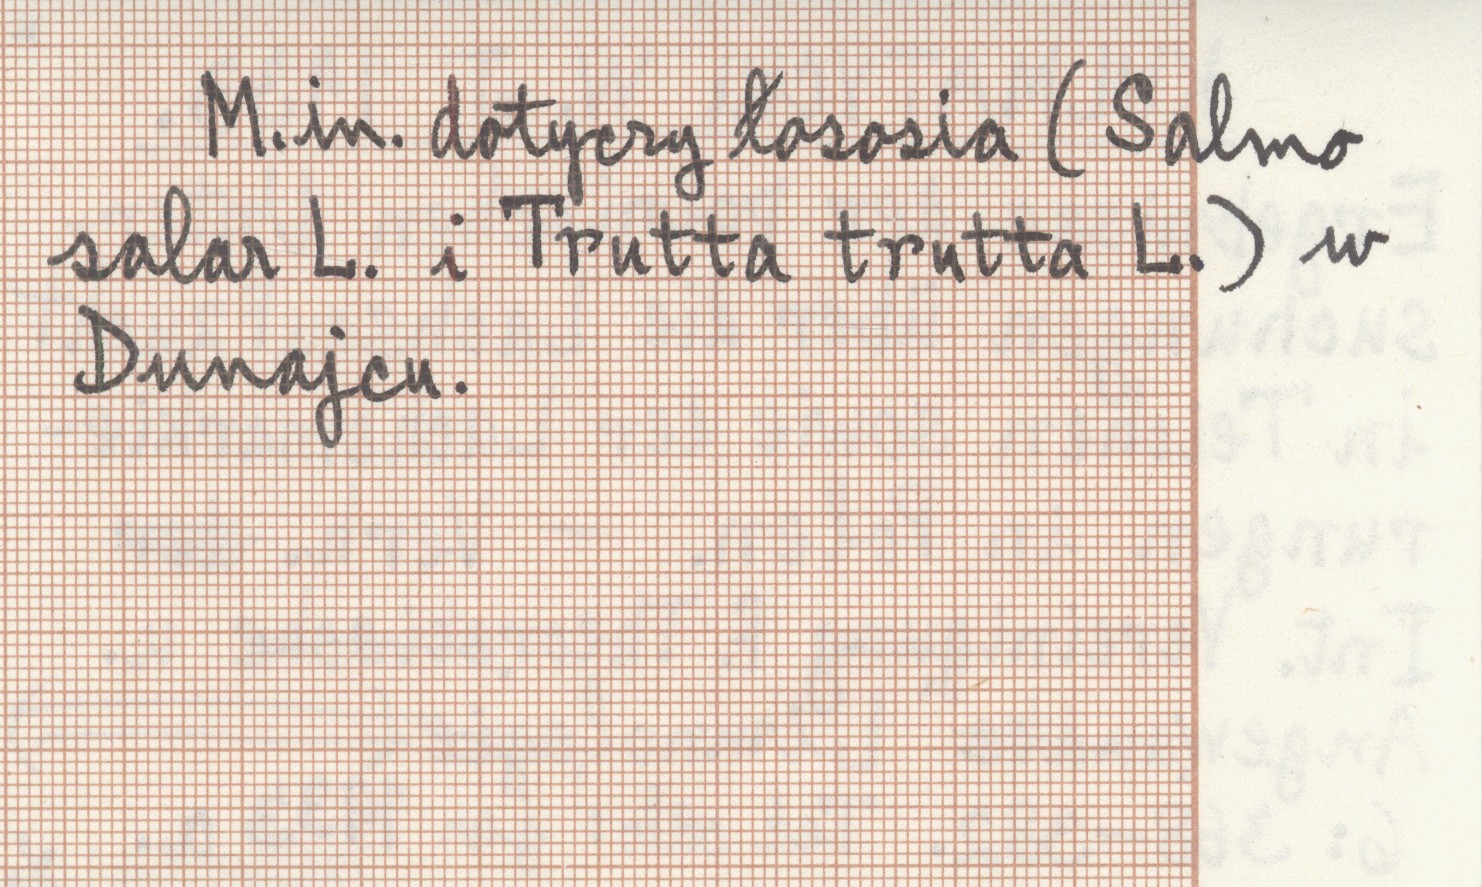 M.in. dotyczy łososia (Salmo
salar L. i Trutta trutta L.) w
Dunajcu.